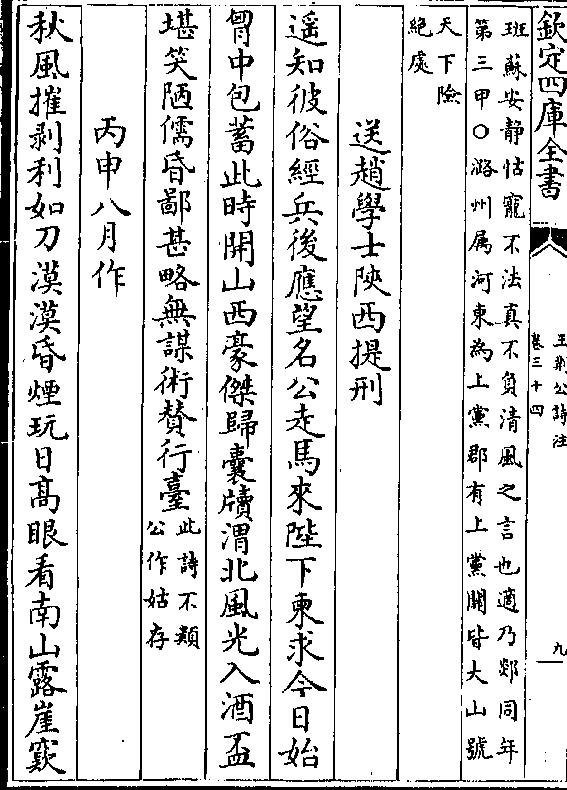 欽定四庫全書
王荆公詩注
卷三十四
九
班蘇安静怙寵不法真不負清風之言也適乃郯同年
第三甲○潞州屬河東為上黨郡有上黨關皆大山號
天下險
絶處
送趙學士陜西提刑
遥知彼俗經兵後應望名公走馬來陛下柬求今日始
胷中包蓄此時開山西豪傑歸囊牘渭北風光入酒盃
堪笑陋儒昏鄙甚略無謀術賛行臺此詩不類
公作姑存
丙申八月作
秋風摧剥利如刀漠漠昏煙玩日髙眼看南山露崖竅